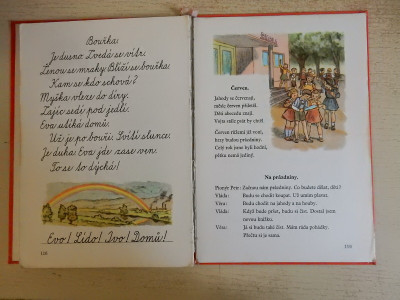 Bouřka.
Je dusno. Zvedá se vítr.
Ženou se mraky. Blíží se bouřka.
Kam se kdo schová?
Myška vleze do díry.
Zajíc sedí pod jedlí.
Eva utíká domů.
Už je po bouři. Svítí slunce.
Je duha. Eva jde zase ven.
To se to dýchá!
Evo! Lído! Ivo! Domů!
118
Červen.
Jahody se červenají,
měsíc červen přišel.
Děti abecedu znají,
Vojta zpěv ptáčků slyšel.
Červen růžemi již voní,
brzy budou prázdniny.
Celý rok jsme byli hodní,
pěkně
Na prázdniny.
Pionýr Petr: Začnou nám prázdniny. Co budete dělat, děti?
Vláďa: Budu se chodit koupat. Už umím plavat.
Věra: Budu chodit na jahody a na houby.
Vláďa: Když bude pršet, budu si číst. Dostal jsem
novou knížku.
Věra: Já si budu také číst. Mám ráda pohádky.
Přečtu si je sama.
119